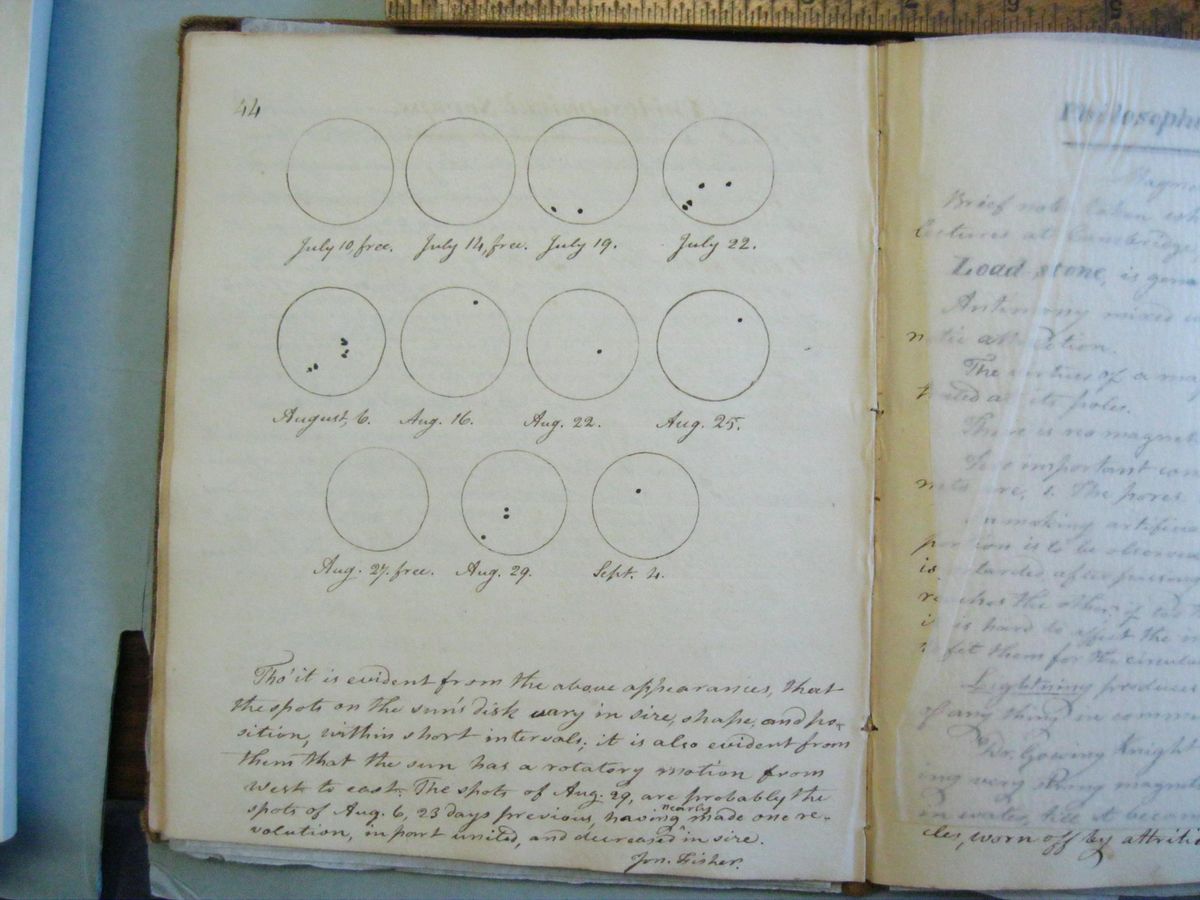 44
July 10, free. July 14, free. July 19. July 22.
August, 6. Aug. 16. Aug. 22. Aug. 25.
Aug. 27. free. Aug. 29. Sept. 4.
Tho' it is evident from the above appearances, that
the spots on the sun's disk vary in size, shape, and po-
sition, within short intervals; it is also evident from
them that the sun has a rotatory motion from
west to east. The spots of Aug. 29, are probably the
spots of Aug. 6, 23 days previous, having nearly made one re-
volution, in part united, and decreased in size.
Jon. Fisher.
Philosophi
Magne
Brief not taken
lectures at Cambridge,
Load stone, is gene
Antimony mixed
The virtues of a ma
its poles.
There is no magnet
Two important con
are, 1. The pores
In making artificia
portion is to be observe
after
the other,
is hard to affect the
fit them for the circula
Lightning produces
of any thing in comm
Dr. Gowing Knight
ing very strong magne
in water, till it becom
cles, worn off by attriti